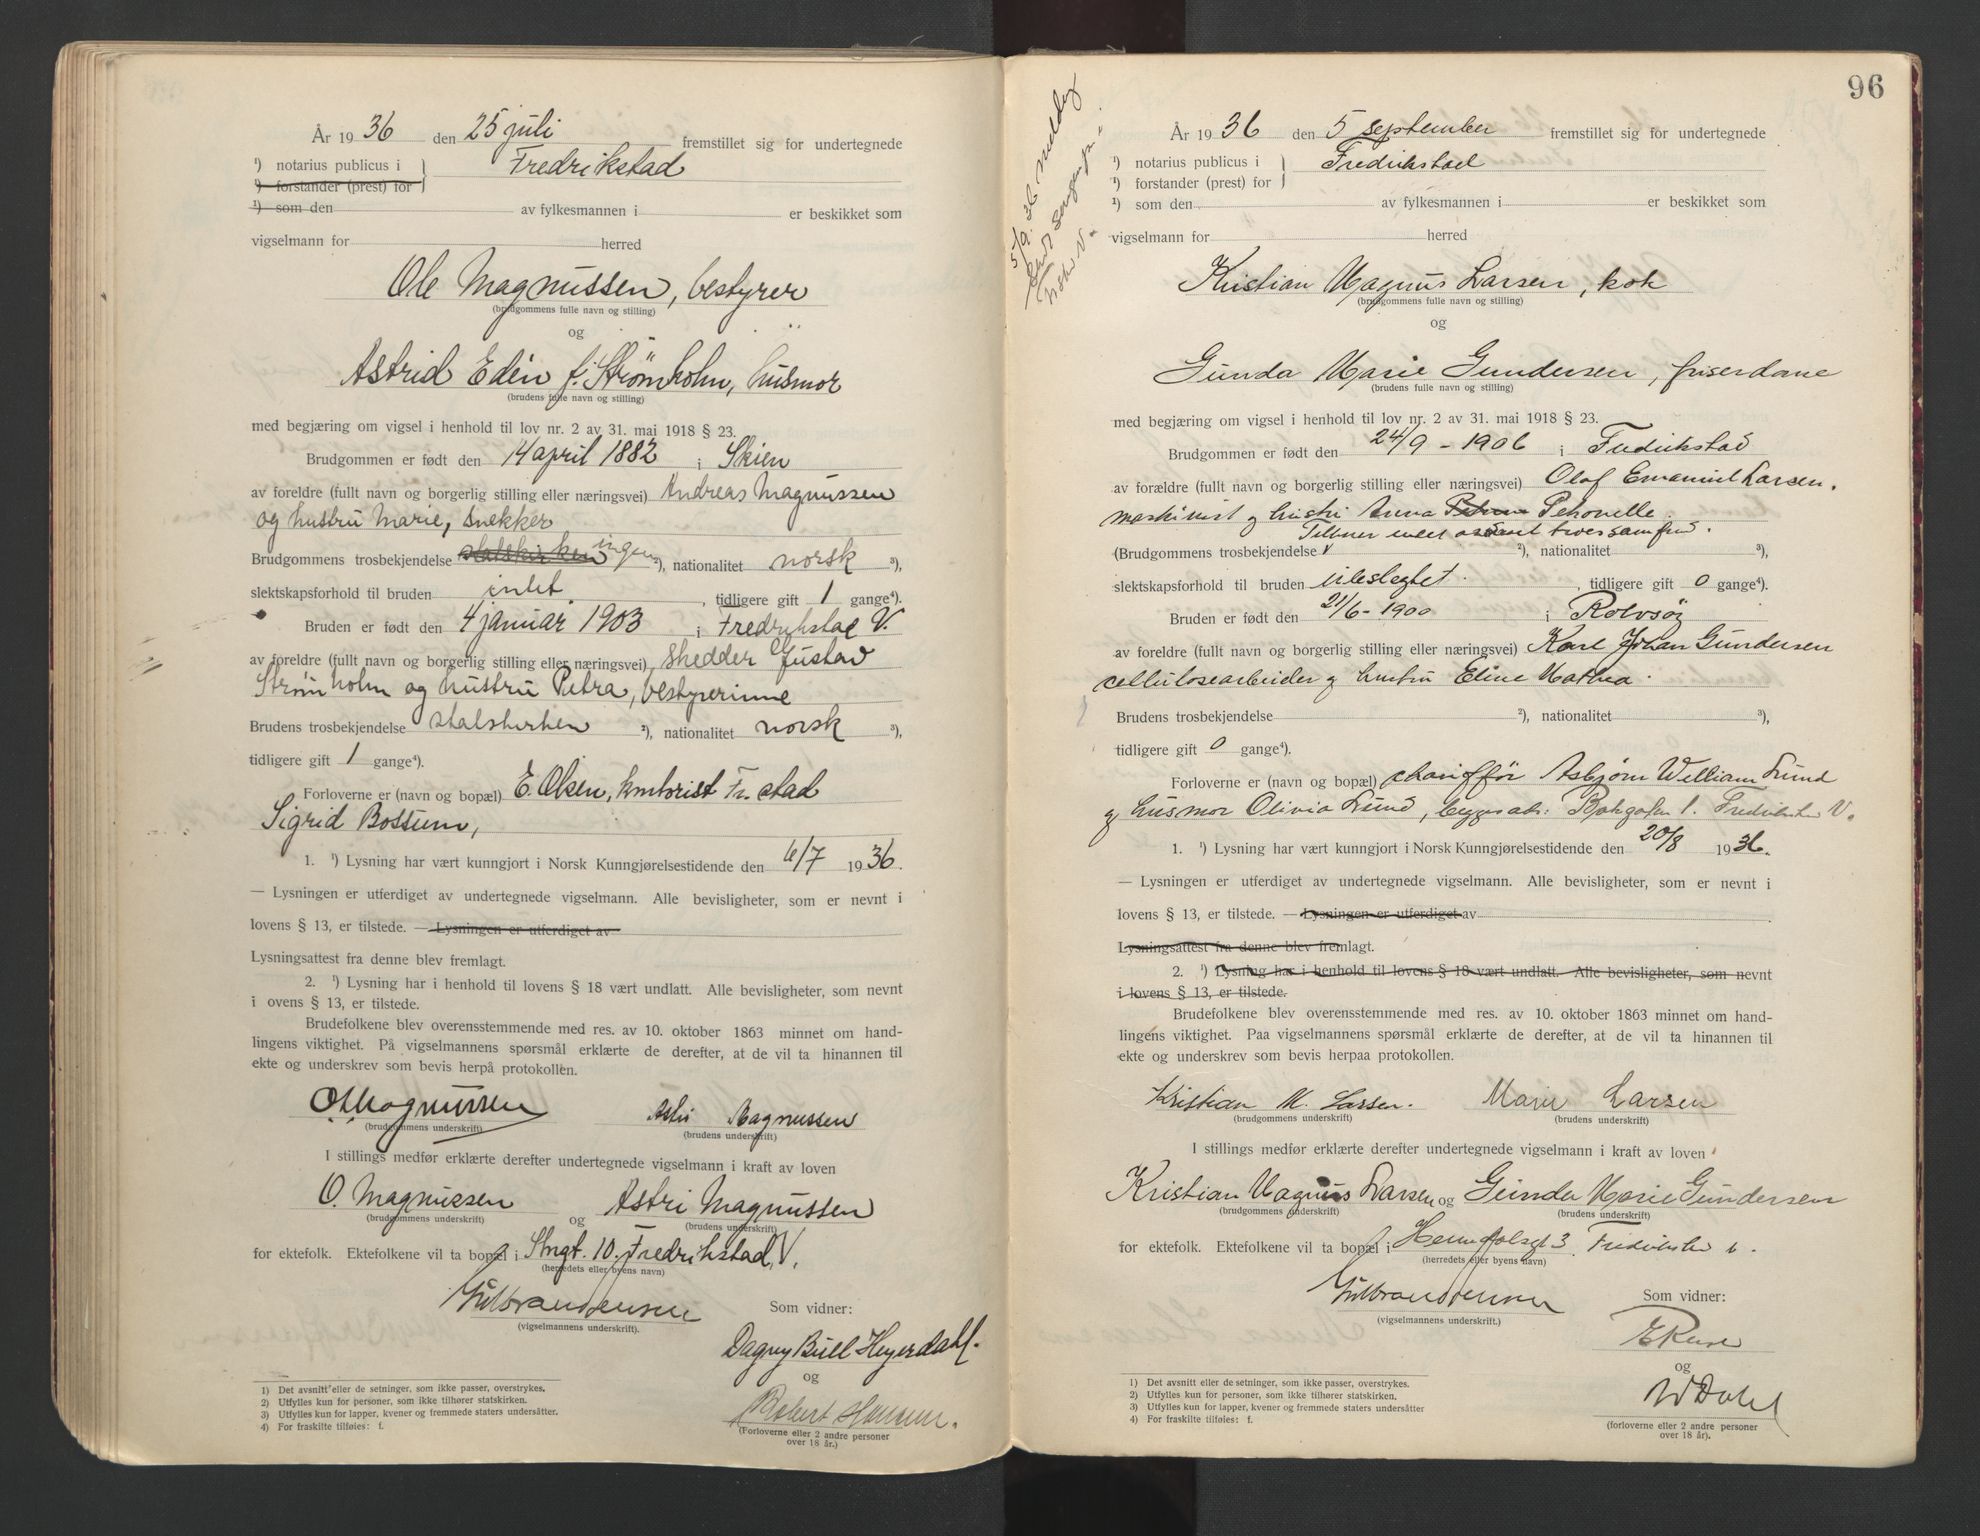 År 1936 den 25 juli fremstillet sig for undertegnede
¹) notarius publicus i Fredrikstad
¹) forstander (prest) for
¹) som den av fylkesmannen i er beskikket som
vigselmann for herred
Ole Magnussen, bestyrer
(brudgommens fulle navn og stilling)
og
Astrid Edén f. Strømholm, husmor
(brudens fulle navn og stilling)
med begjæring om vigsel i henhold til lov nr. 2 av 31. mai 1918 § 23.
Brudgommen er født den 14 april 1882 i Skien
av foreldre (fullt navn og borgerlig stilling eller næringsvei) Andreas Magnussen
og hustru Marie, snekker
Brudgommens trosbekjendelse statskirken ingen ²), nationalitet norsk ³),
slektskapsforhold til bruden intet, tidligere gift 1 gange⁴).
Bruden er født den 4 januar 1903 i Fredrikstad V.
av foreldre (fullt navn og borgerlig stilling eller næringsvei) skredder Gustav
Strømholm og hustru Petra, bestyrerinne
Brudens trosbekjendelse statskirken ²), nationalitet norsk ³),
tidligere gift 1 gange⁴).
Forloverne er (navn og bopæl) E. Olsen, kontorist Fr.stad
Sigrid Bossum,
1. ¹) Lysning har vært kunngjort i Norsk Kunngjørelsestidende den 6/7 1936.
— Lysningen er utferdiget av undertegnede vigselmann. Alle bevisligheter, som er nevnt i
lovens § 13, er tilstede. — Lysningen er utferdiget av
Lysningsattest fra denne blev fremlagt.
2. ¹) Lysning har i henhold til lovens § 18 vært undlatt. Alle bevisligheter, som nevnt
i ovens § 13, er tilstede.
Brudefolkene blev overensstemmende med res. av 10. oktober 1863 minnet om hand-
lingens viktighet. På vigselmannens spørsmål erklærte de derefter, at de vil ta hinannen til
ekte og underskrev som bevis herpå protokollen.
O Magnussen Astri Magnussen
(brudgommens underskrift) (brudens underskrift)
I stillings medfør erklærte derefter undertegnede vigselmann i kraft av loven
O. Magnussen og Astri Magnussen
(brudgommens underskrift) (brudens underskrift)
for ektefolk. Ektefolkene vil ta bopæl i Stngt. 10. Fredrikstad, V.
(herredets eller byens navn)
Gulbrandsensen Som vidner:
(vigselmannens underskrift).
Dagny Bull Heyerdahl.
og
Robert Hansen.
(Forloverne eller 2 andre personer
over 18 år.)
1) Det avsnitt eller de setninger, som ikke passer, overstrykes.
2) Utfylles kun for personer, som ikke tilhører statskirken.
3) Utfylles kun for lapper, kvener og fremmede staters undersåtter.
4) For fraskilte tilføies: f.
96
5/9. 36 meldt
År 1936 den 5 september fremstillet sig for undertegnede
¹) notarius publicus i Fredrikstad
¹) forstander (prest) for
¹) som den av fylkesmannen i er beskikket som
vigselmann for herred
Kristian Magnus Larsen, kok
(brudgommens fulle navn og stilling)
og
Gunda Marie Gundersen, friserdame
(brudens fulle navn og stilling)
med begjæring om vigsel i henhold til lov nr. 2 av 31. mai 1918 § 23.
Brudgommen er født den 24/9 - 1906 i Fredrikstad
av forældre (fullt navn og borgerlig stilling eller næringsvei) Olaf Emanuel Larsen,
maskinist og hustru Anna Petronelle.
Tilhører intet trossamfund.
(Brudgommens trosbekjendelse ²), nationalitet ³),
slektskapsforhold til bruden ubeslegtet. , tidligere gift 0 gange⁴).
Bruden er født den 21/6 - 1900 i Rolvsøy
av foreldre (fullt navn og borgerlig stilling eller næringsvei) Karl Johan Gundersen
cellulosearbeider og hustru Eline Mathea.
Brudens trosbekjendelse ²), nationalitet ³),
tidligere gift 0 gange⁴).
Forloverne er (navn og bopæl) chauffør Asbjørn William Lund
og husmor Olivia Lund, begges adr: 1. Fredrikstad V.
1. ¹) Lysning har vært kunngjort i Norsk Kunngjørelsestidende den 20/8 1936.
— Lysningen er utferdiget av undertegnede vigselmann. Alle bevisligheter, som er nevnt i
lovens § 13, er tilstede. — Lysningen er utferdiget av
Lysningsattest fra denne blev fremlagt.
2. ¹) Lysning har i henhold til lovens § 18 vært undlatt. Alle bevisligheter, som nevnt
i lovens § 13, er tilstede.
Brudefolkene blev overensstemmende med res. av 10. oktober 1863 minnet om hand-
lingens viktighet. Paa vigselmannens spørsmål erklærte de derefter, at de vil ta hinannen til
ekte og underskrev som bevis herpaa protokollen.
Kristian M. Larsen. Marie Larsen
(brudgommens underskrift) (brudens underskrift)
I stillings medfør erklærte derefter undertegnede vigselmann i kraft av loven
Kristian Magnus Larsen og Gunda Marie Gundersen
(brudgommens underskrift) (brudens underskrift)
for ektefolk. Ektefolkene vil ta bopæl i 3 Fredrikstad V.
(herredets eller byens navn)
Gulbrandsensen Som vidner:
(vigselmannens underskrift.)
og
W Dahl
(forloverne eller 2 andre personer
over 18 år).
1) Det avsnitt eller de setninger, som ikke passer, overstrykes.
2) Utfylles kun for personer, som ikke tilhører statskirken.
3) Utfylles kun for lapper, kvener og fremmede staters undersåtter
4) For fraskilte tilføies: f.